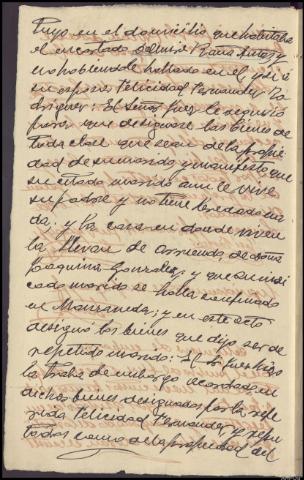 tuyo en el domicilio que habitaba
el encartado Delmiro Rana Arias y
no habiendole hallado en el y si a
su esposa Felicidad Fernandez Ro
driguez: El Señor Juez le requirio
para que designase los bienes de
toda clase que sean de la propie
dad de su marido y manifesto que
su citado marido aun le vive
su padre y no tiene heredado na
da; y la casa en donde viven
la llevan de arriendo de doña
Joaquina Gonzalez y que su indi
cado marido se halla confinado
en Manzaneda; y en este acto
designó los bienes que dijo ser de
repetido marido: El
la traba de embargo acordada en
dichos bienes designados por la refe
rida Felicidad Fernandez y repu
tados como de la propiedad del